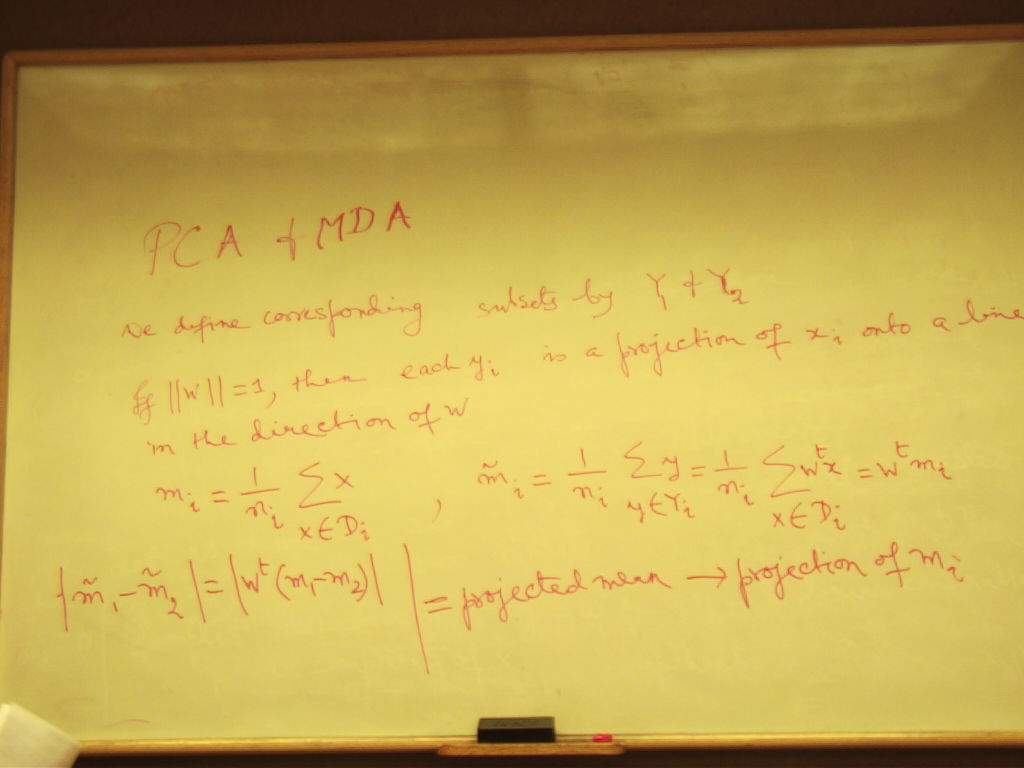 PCA & MDA
We define corresponding subsets by Y₁ & Y₂
If ||w||=1, then each yᵢ is a projection of xᵢ onto a line
in the direction of w
mᵢ = 1/nᵢ Σ_{x∈Dᵢ} x , m̃ᵢ = 1/nᵢ Σ_{y∈Yᵢ} y = 1/nᵢ Σ_{x∈Dᵢ} wᵗx = wᵗmᵢ
|m̃₁-m̃₂| = |wᵗ(m₁-m₂)| | = projected mean → projection of mᵢ